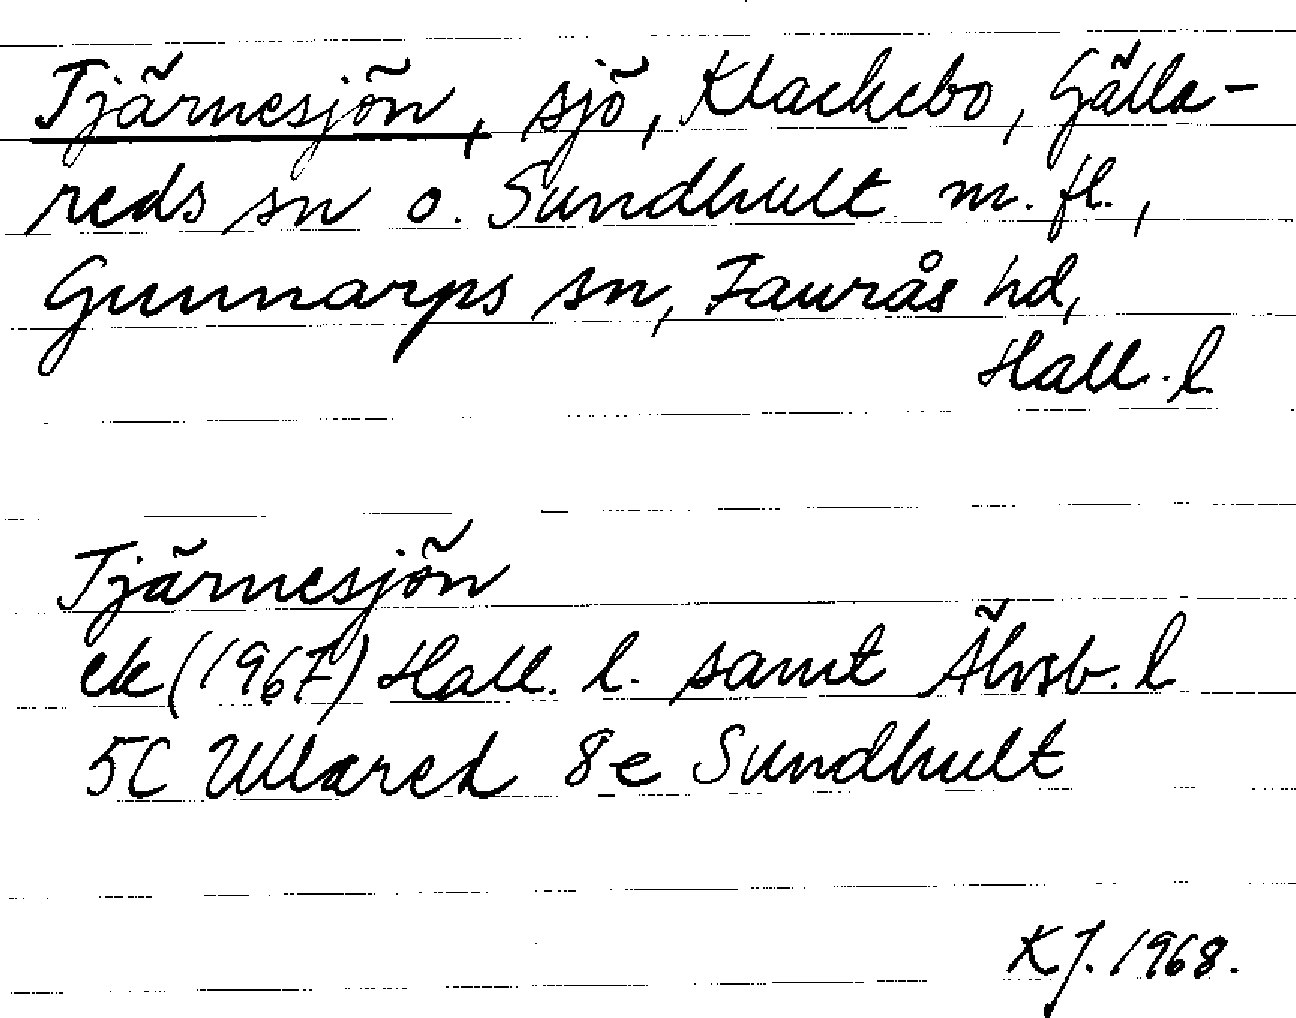 Tjärnesjön, sjö, Klackebo, Gälla-
reds sn o. Sundhult m. fl.,
Gunnarps sn, Faurås hd,
Hall. l.
Tjärnesjön
ek (1967) Hall. l. samt Älvsb. l
5C Ullared 8e Sundhult
KJ. 1968.